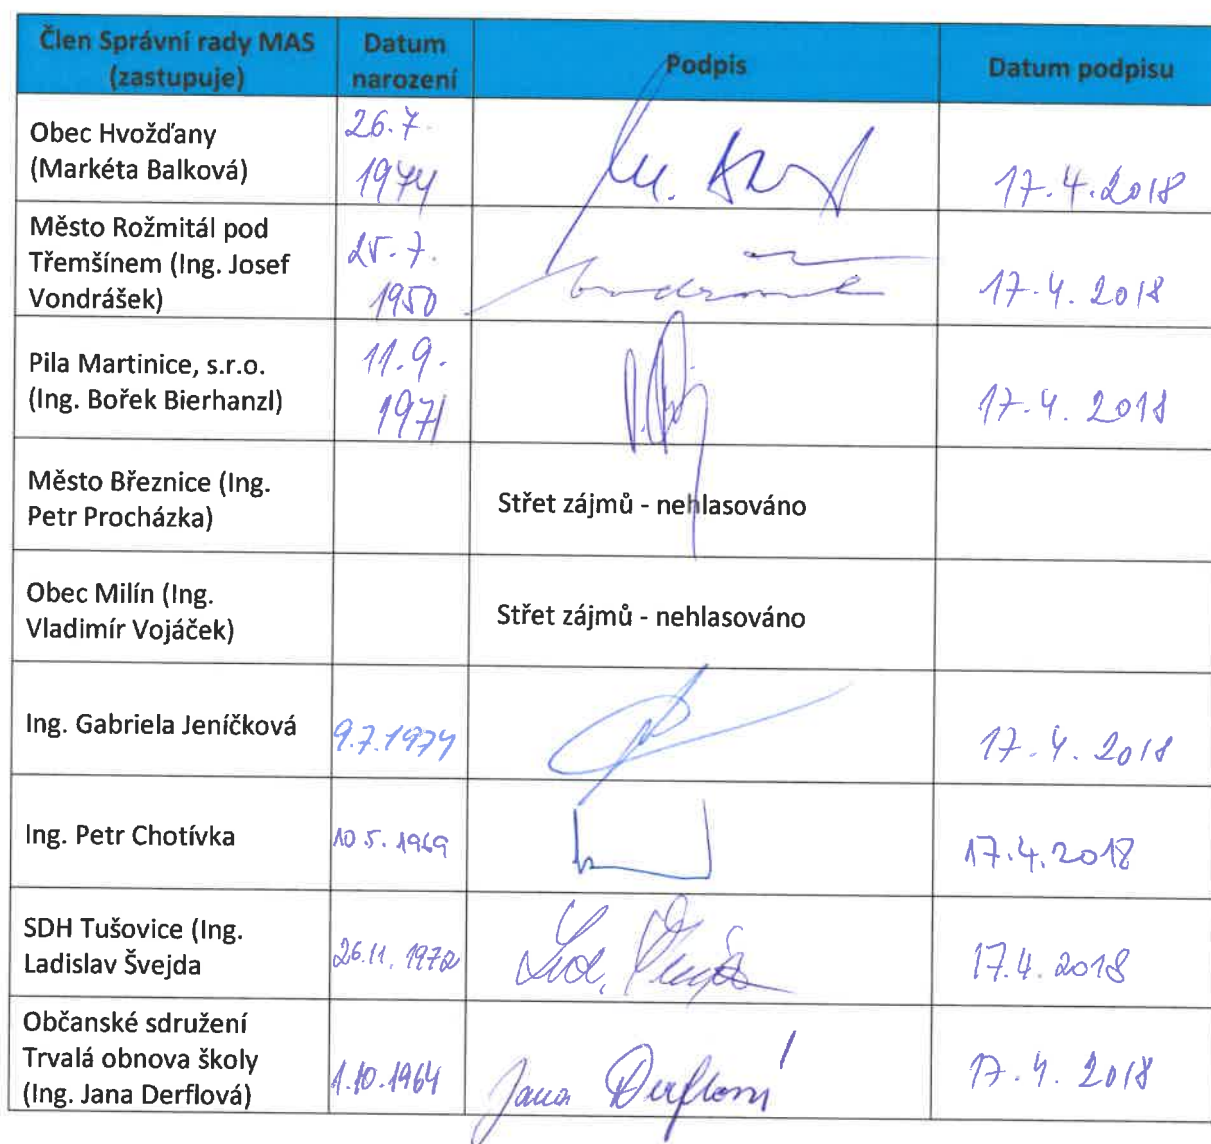 Člen Správní rady MAS
(zastupuje)
Datum
narození
Podpis
Datum podpisu
Obec Hvožďany
(Markéta Balková)
26.7.
1974
17.4.2018
Město Rožmitál pod
Třemšínem (Ing. Josef
Vondrášek)
25.7.
1950
17.4.2018
Pila Martinice, s.r.o.
(Ing. Bořek Bierhanzl)
11.9.
1971
17.4.2018
Město Březnice (Ing.
Petr Procházka)
Střet zájmů - nehlasováno
Obec Milín (Ing.
Vladimír Vojáček)
Střet zájmů - nehlasováno
Ing. Gabriela Jeníčková
9.7.1974
17.4.2018
Ing. Petr Chotívka
10 5. 1969
17.4.2018
SDH Tušovice (Ing.
Ladislav Švejda
26.11.1972
17.4.2018
Občanské sdružení
Trvalá obnova školy
(Ing. Jana Derflová)
1.10.1964
Jana Derflová
17.4.2018